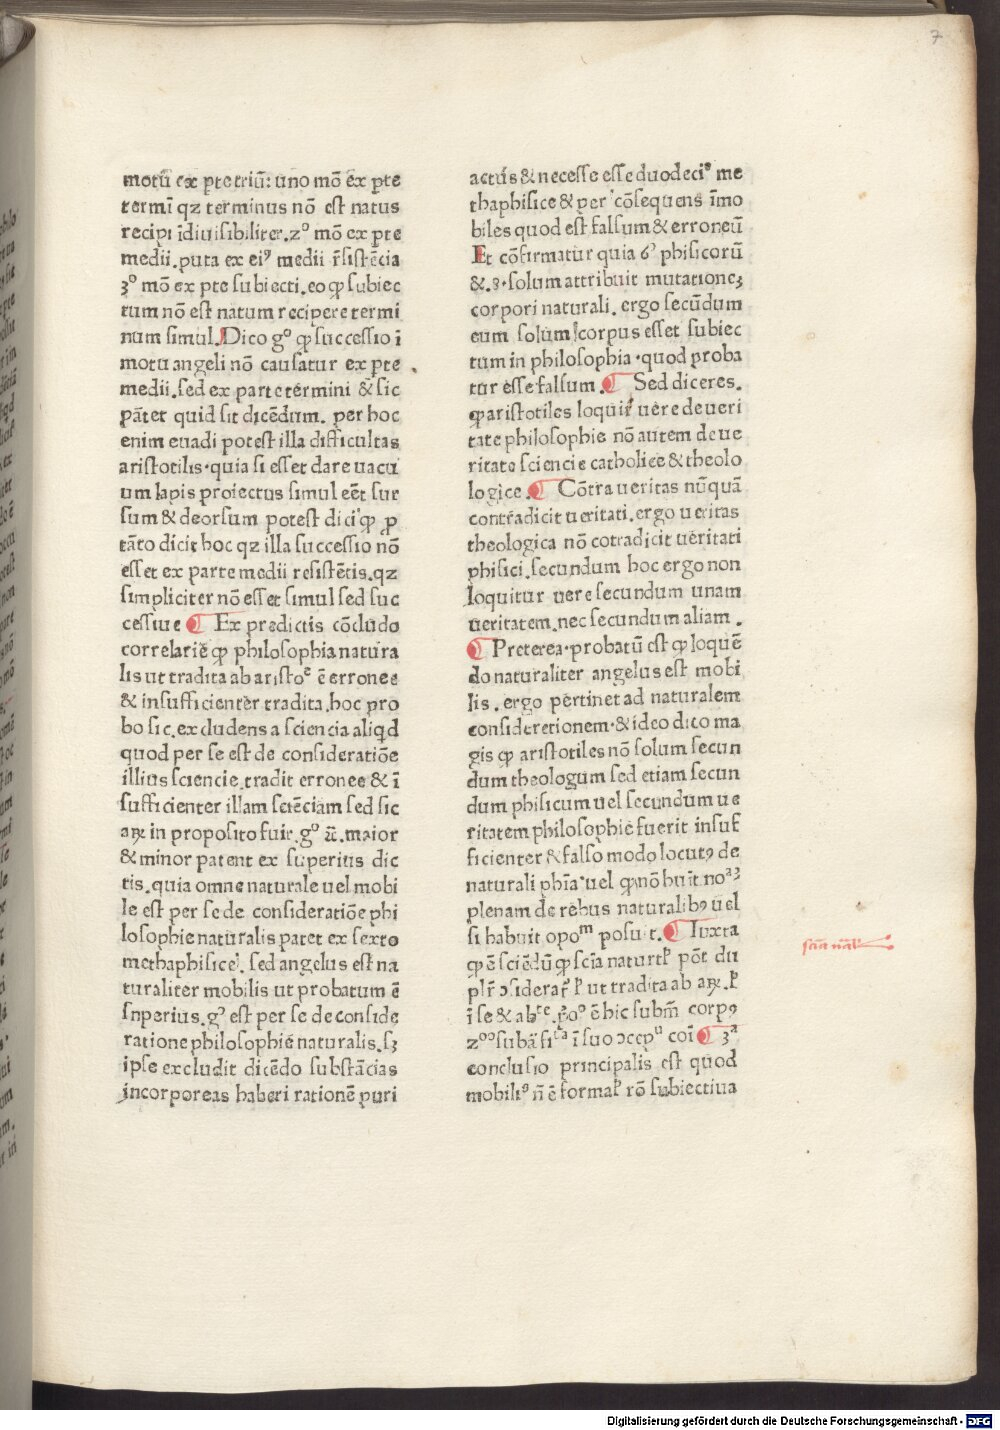 7
motū ex ꝑte triū: uno mō ex ꝑte
termī qz terminus nō est natus
recipi īdiuisibiliter. 2º mō ex ꝑte
medii. puta ex eiꝰ medii r̄sistēcia
3º mō ex pte subiecti. eo ꝙ subiec
tum nō est natum recipere termi
num simul. Dico gº ꝙ successio ī
motu angeli nō causatur ex pte
medii. sed ex parte termini & sic
pātet quid sit dicēdum. per hoc
enim euadi potest illa difficultas
aristotilis. quia si esset dare uacu
um lapis proiectus simul eēt sur
sum & deorsum potest dici ꝙ ꝓ
tāto dicit hoc qz illa successio nō
esset ex parte medii resistētis. qz
simpliciter nō esset simul sed suc
cessiue ¶ Ex predictis cōcludo
correlariē ꝙ philosophia natura
lis ut tradita ab aristoᵉ ē erronee
& insufficienter tradita. hoc pro
bo sic. excludens a sciencia aliqd
quod per se est de consideratiōe
illius sciencie. tradit erronee & ī
sufficienter illam sciēciam sed sic
aꝝ in proposito fuit. gº &c̄. maior
& minor patent ex superius dic
tis. quia omne naturale uel mobi
le est per se de consideratiōe phi
losophie naturalis patet ex sexto
methaphisice. sed angelus est na
turaliter mobilis ut probatum ē
snperius. gº est per se de conside
ratione philosophie naturalis. sꝫ
ipse excludit dicēdo substācias
incorporeas haberi rationē puri
actus & necesse esse duodeciꝰ me
thaphisice & per cōsequens īmo
biles quod est falsum & erroneū
Et cōfirmatur quia 6º phisicorū
&. 3. solum attribuit mutationeꝫ
corpori naturali. ergo secūdum
eum solum corpus esset subiec
tum in philosophia. quod proba
tur esse falsum. ¶ Sed diceres.
ꝙ aristotiles loquit̄ uere de ueri
tate philosophie nō autem de ue
ritate sciencie catholice & theolo
logice. ¶ Cōtra ueritas nūquā
contradicit ueritati. ergo ueritas
theologica nō cotradicit ueritati
phisici. secundum hoc ergo non
loquitur uere secundum unam
ueritatem. nec secundum aliam.
¶ Preterea. probatū est ꝙ loquē
do naturaliter angelus est mobi
lis. ergo pertinet ad naturalem
consideretionem. & ideo dico ma
gis ꝙ aristotiles nō solum secun
dum theologum sed etiam secun
dum phisicum uel secundum ue
ritatem philosophie fuerit insuf
ficienter & falso modo locutꝯ de
naturali phīa. uel ꝙ nō huīt noᵃꝫ
plenam de rebus naturalibꝯ uel
si habuit opoᵐ posuit. ¶ Iuxta
ꝙ ē sciēdū ꝙ scīa naturꝉ pōt du
plr̄ ↄsiderar̄. ꝉ ut tradita ab aꝝ. ꝉ
ī se & abᶜᵗᵉ. pº ē hic subm̄ corpꝯ
subā fiᵗᵃ ī suo ↄcepᵘ coī ¶ 3ᵃ
conclusio principalis est quod
mobiliꝰ n̄ ē formaꝉ rō subiectiua
scīa nāl
Digitalisierung gefördert durch die Deutsche Forschungsgemeinschaft - DFG